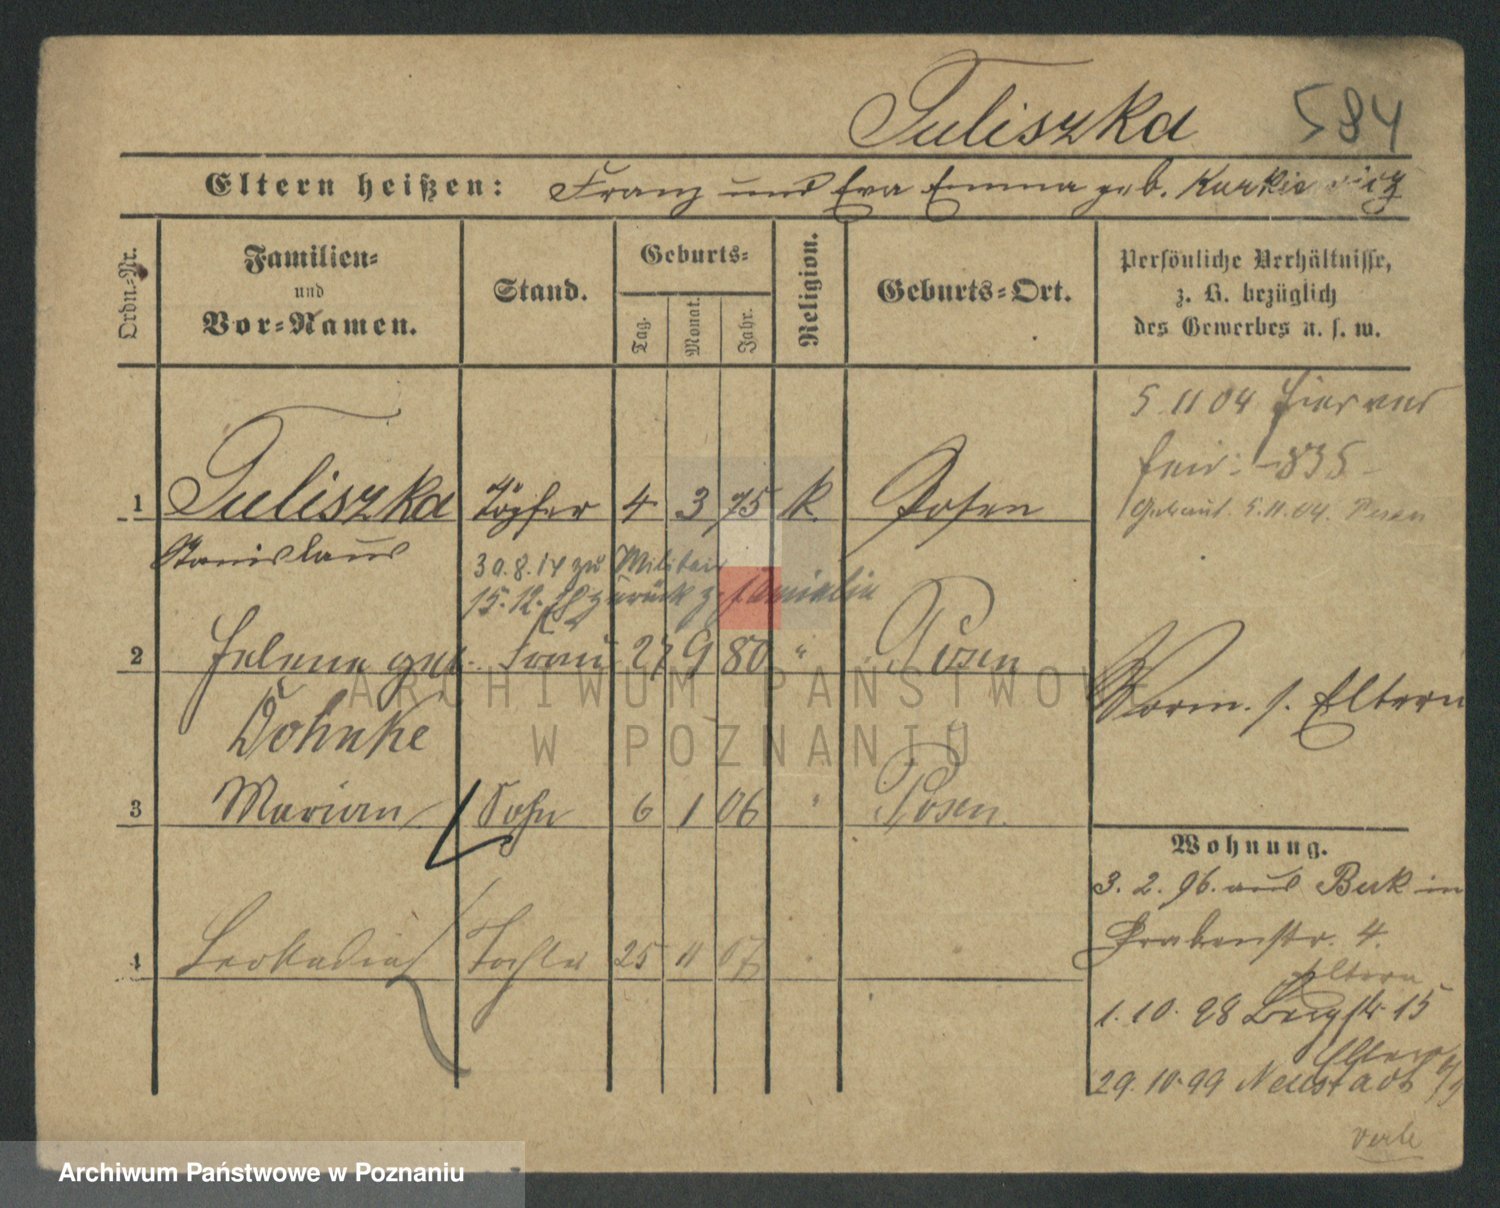 Tuliszka 584
Eltern heißen: Franz und Eva Emma geb. Kurkiewicz
Ordn.-Nr.
Familien-
und
Vor-Namen.
Stand.
Geburts-
Tag.
Monat.
Jahr.
Religion.
Geburts-Ort.
Persönliche Verhältnisse,
z. B. bezüglich
des Gewerbes u. s. w.
5 11 04 hier
835
5.11.04. Posen
1 Tuliszka Töpfer 4 3 75 k. Posen
Stanislaus
30.8.14 zu Militair
15.12. zurück
2 Helene geb. Frau 27 9 80 " Posen
Dohnke
Vorm. s. Eltern
3 Marian Sohn 6 1 06 " Posen
Wohnung.
3. 2. 96. aus Buk in
Grabenstr. 4.
4 Leokadia Tochter 25 11 07
Eltern
1. 10. 98 Bergstr 15
Eltern
29. 10. 99 Neustadt
verte
ARCHIWUM PAŃSTWOWE
W POZNANIU
Archiwum Państwowe w Poznaniu